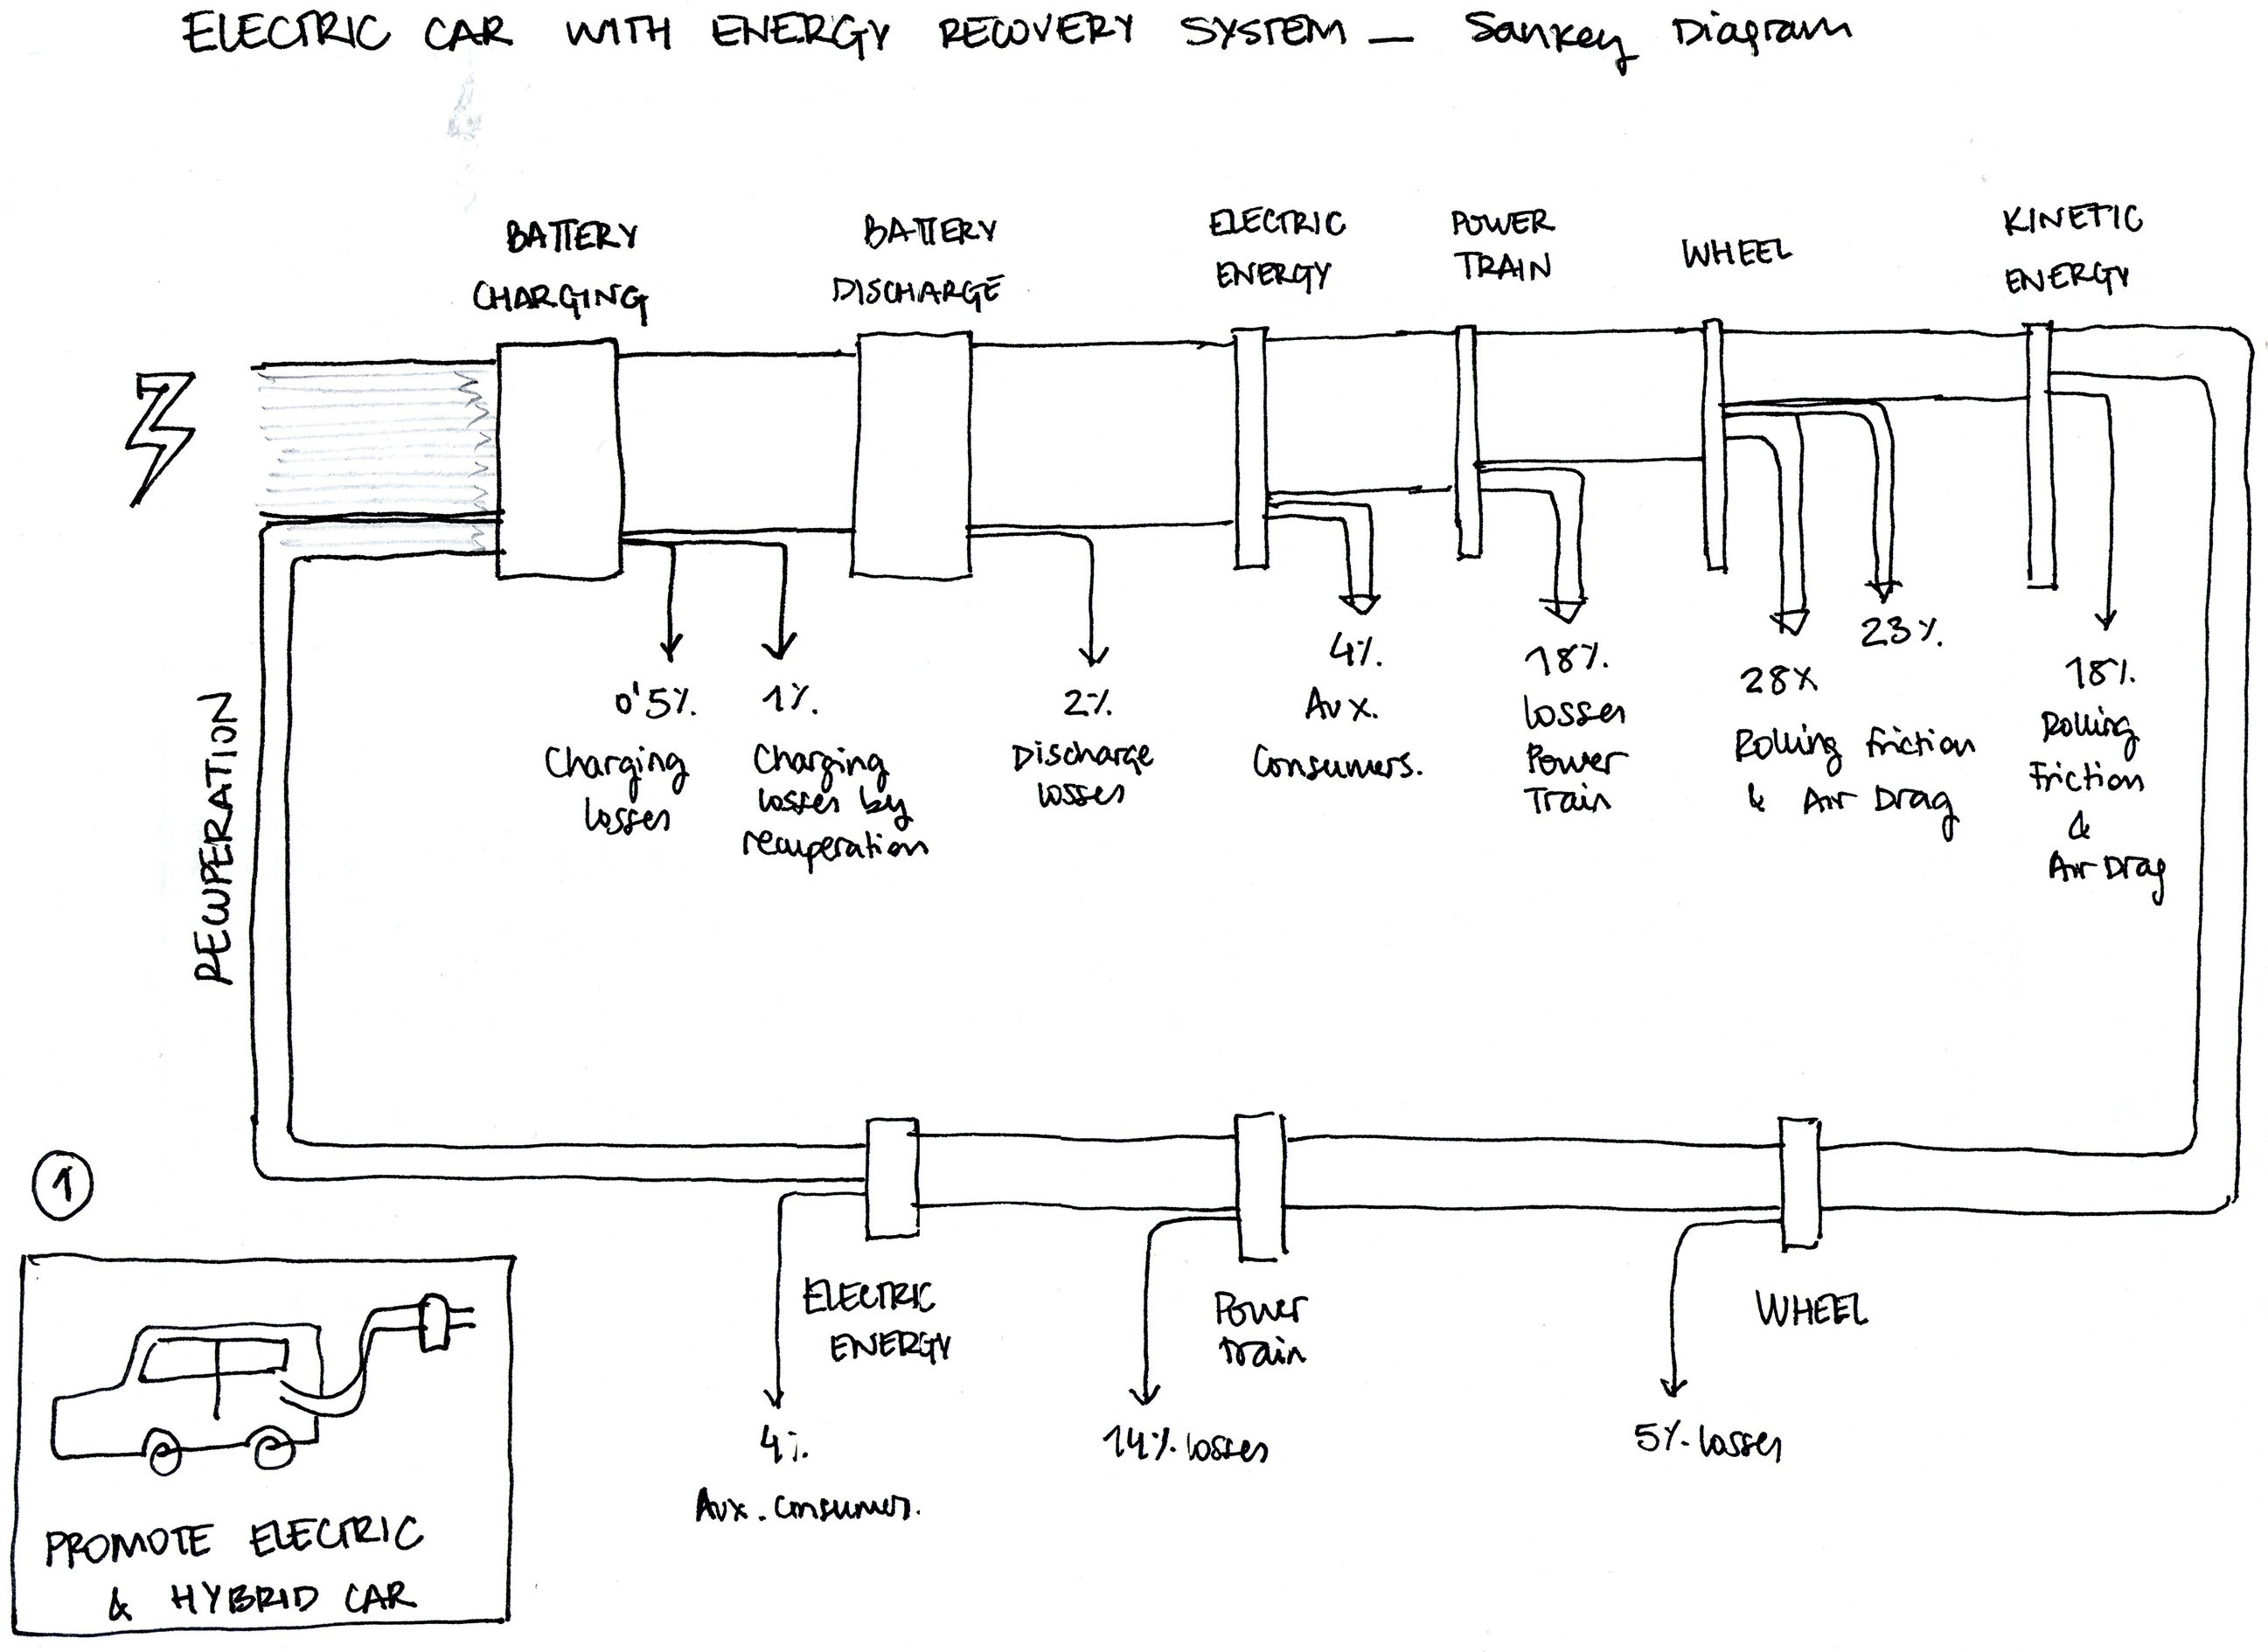 ELECTRIC CAR WITH ENERGY RECOVERY SYSTEM — Sankey Diagram
BATTERY
CHARGING
BATTERY
DISCHARGE
ELECTRIC
ENERGY
POWER
TRAIN
WHEEL
KINETIC
ENERGY
0'5%.
Charging
losses
1%.
Charging
losses by
recuperation
2%.
Discharge
losses
4%.
Aux.
Consumers.
18%.
losses
Power
Train
28%
23%.
Rolling friction
& Air Drag
18%.
Rolling
Friction
&
Air Drag
RECUPERATION
ELECTRIC
ENERGY
Power
train
WHEEL
4%.
Aux. consumer.
14%. losses
5%. losses
1
PROMOTE ELECTRIC
& HYBRID CAR